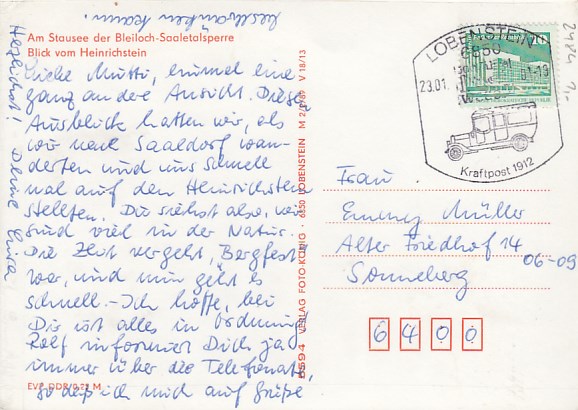 Am Stausee der Bleiloch-Saaletalsperre
Blick vom Heinrichstein
Liebe Mutti, einmal eine
ganz andere Ansicht. Diesen
Ausblick hatten wir, als
wir nach Saaldorf wan-
derten und uns schnell
mal auf den Heinrichstein
stellten. Du siehst also, wir
sind viel in der Natur.
Die Zeit vergeht, Bergfest
war, und nun geht's
schnell. - Ich hoffe, bei
Dir ist alles in Ordnung,
Rolf informiert Dich ja
immer über die Telefonate,
so daß ich mich auf Grüße
beschränken kann.
Herzlichst! Deine
EVP DDR 0,22 M
8594 VERLAG FOTO-KÖNIG · 6850 LOBENSTEIN M 2/0789 V 18/13
LOBENSTEIN
6850
23.01.
Kraftpost 1912
Frau
Müller
Alter Friedhof 14
06-09
Sonneberg
6400